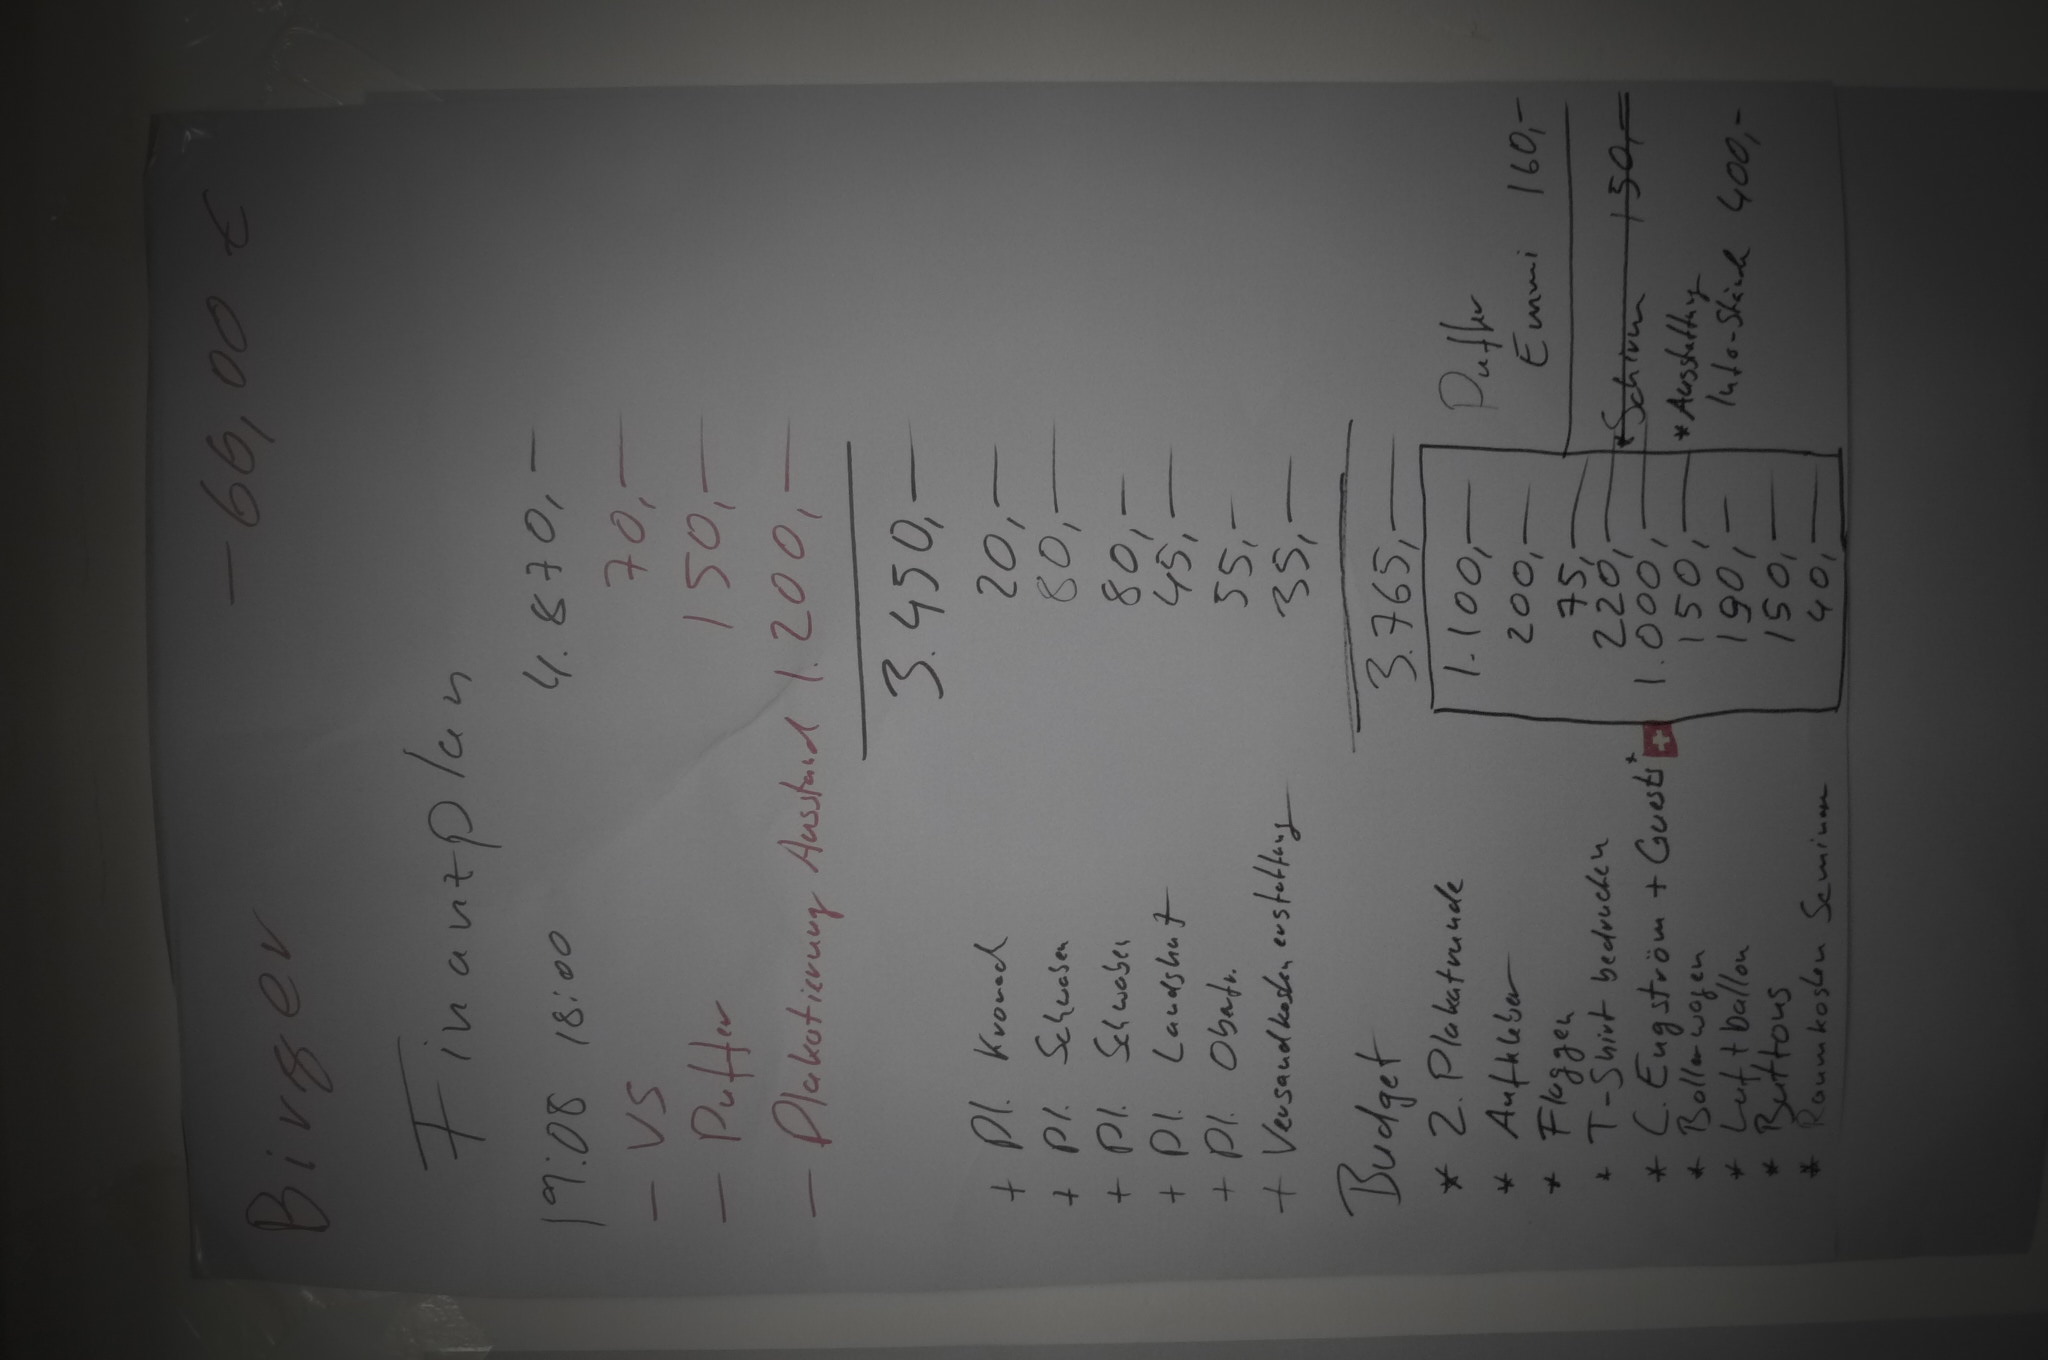 Birger -66,00 €
Finanzplan
19:08 18:00 4.870,—
— VS 70,—
— Puffer 150,—
— Plakatierung Ausstand 1.200,—
3.450,—
+ Pl. Kronach 20,—
+ Pl. Schwaben 80,—
+ Pl. Schwaben 80,—
+ Pl. Landshut 45,—
+ Pl. Obnfr. 55,—
+ Versandkostenerstattung 35,—
Budget 3.765,—
* 2. Plakatrunde 1.100,—
* Aufkleber 200,—
* Flaggen 75,—
* T-Shirt bedrucken 220,—
* C. Engström + Guests* 1.000,—
* Bollerwagen 150,—
* Luftballon 190,—
* Buttons 150,—
* Raumkosten Seminar 40,—
Puffer
Emmi 160,—
* Schirm 150,—
* Ausstattung
Info-Stände 400,—